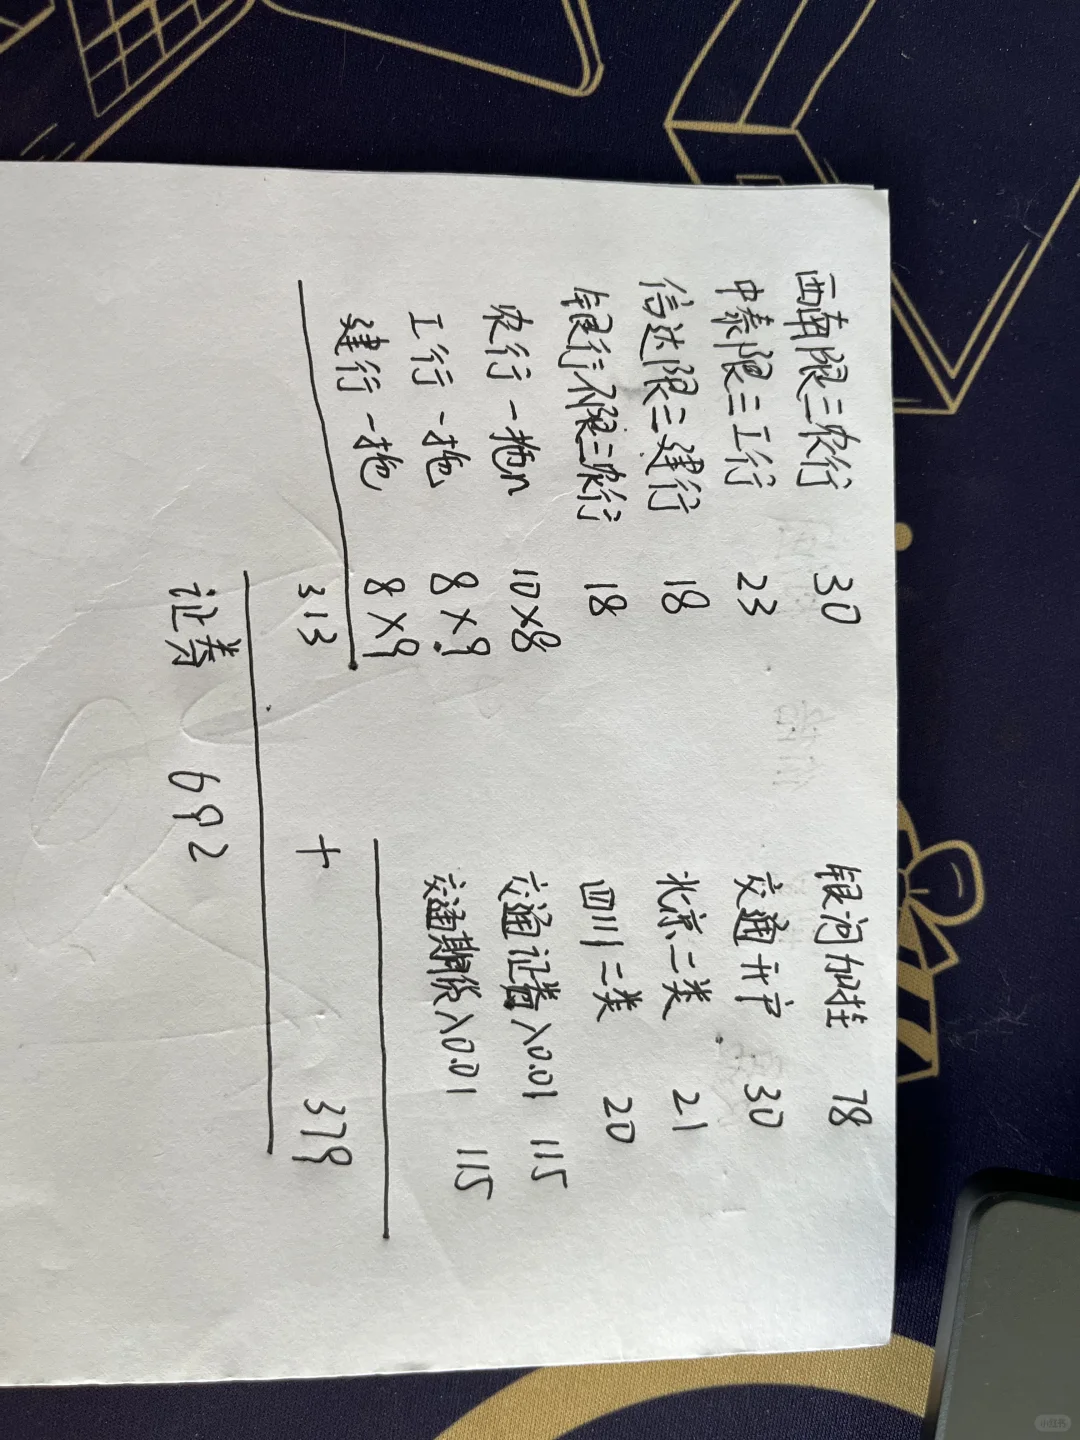 西南限三农行 30
中泰限三工行 23
信达限三建行 18
银行不限三农行 18
农行一拖n 10×8
工行一拖 8×9
建行一拖 8×9
313
银河加挂 78
交通开户 30
北京二类 21
四川二类 20
交通证券入0.01 115
交通期货入0.01 115
+ 379
证券 692
小红书